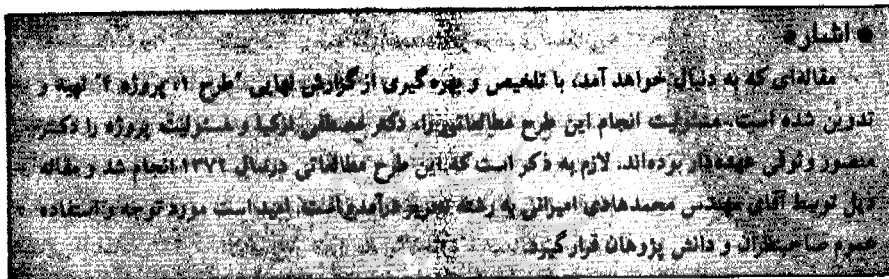 ● اشاره
مقاله‌ای که به دنبال خواهد آمد، با تلخیص و بهره گیری از گزارش نهایی "طرح ۱، پروژه ۲" تهیه و
تدوین شده است. مسئولیت انجام این طرح مطالعاتی را، دکتر مصطفی ازکیا و مسئولیت پروژه را دکتر
منصور وثوقی عهده‌دار بوده‌اند. لازم به ذکر است که این طرح مطالعاتی در سال ۱۳۷۲ انجام شد و مقاله
ذیل توسط آقای مهندس محمدهادی امیرانی به رشته تحریر درآمده است. امید است مورد توجه و استفاده
عموم صاحبنظران و دانش پژوهان قرار گیرد.